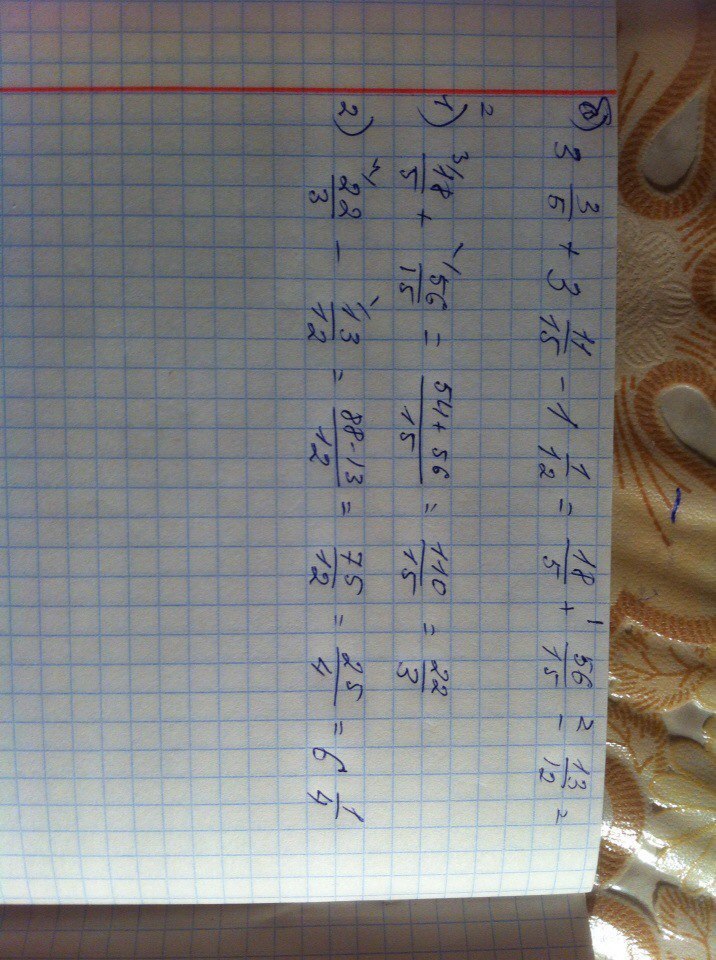 б) 3 3/5 + 3 11/15 - 1 1/12 = 18/5 + 56/15 - 13/12 =
=
1) 18/5 + 56/15 = 54+56/15 = 110/15 = 22/3
2) 22/3 - 13/12 = 88-13/12 = 75/12 = 25/4 = 6 1/4